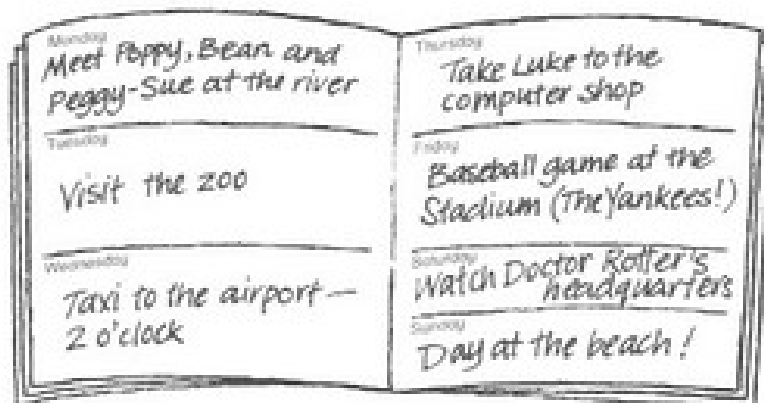 Monday
Meet Poppy, Bean and
Peggy-Sue at the river
Tuesday
Visit the zoo
Wednesday
Taxi to the airport —
2 o'clock
Thursday
Take Luke to the
computer shop
Friday
Baseball game at the
Stadium (The Yankees!)
Saturday
Watch Doctor Rotter's
headquarters
Sunday
Day at the beach!